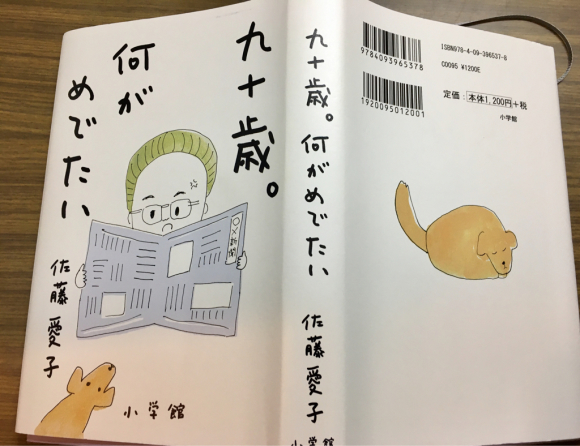 九十歳。
何が
めでたい
佐藤愛子
○×新聞
小学館
九十歳。何がめでたい
佐藤愛子
小学館
9784093965378
1920095012001
ISBN978-4-09-396537-8
C0095 ¥1200E
定価：本体1,200円+税
小学館